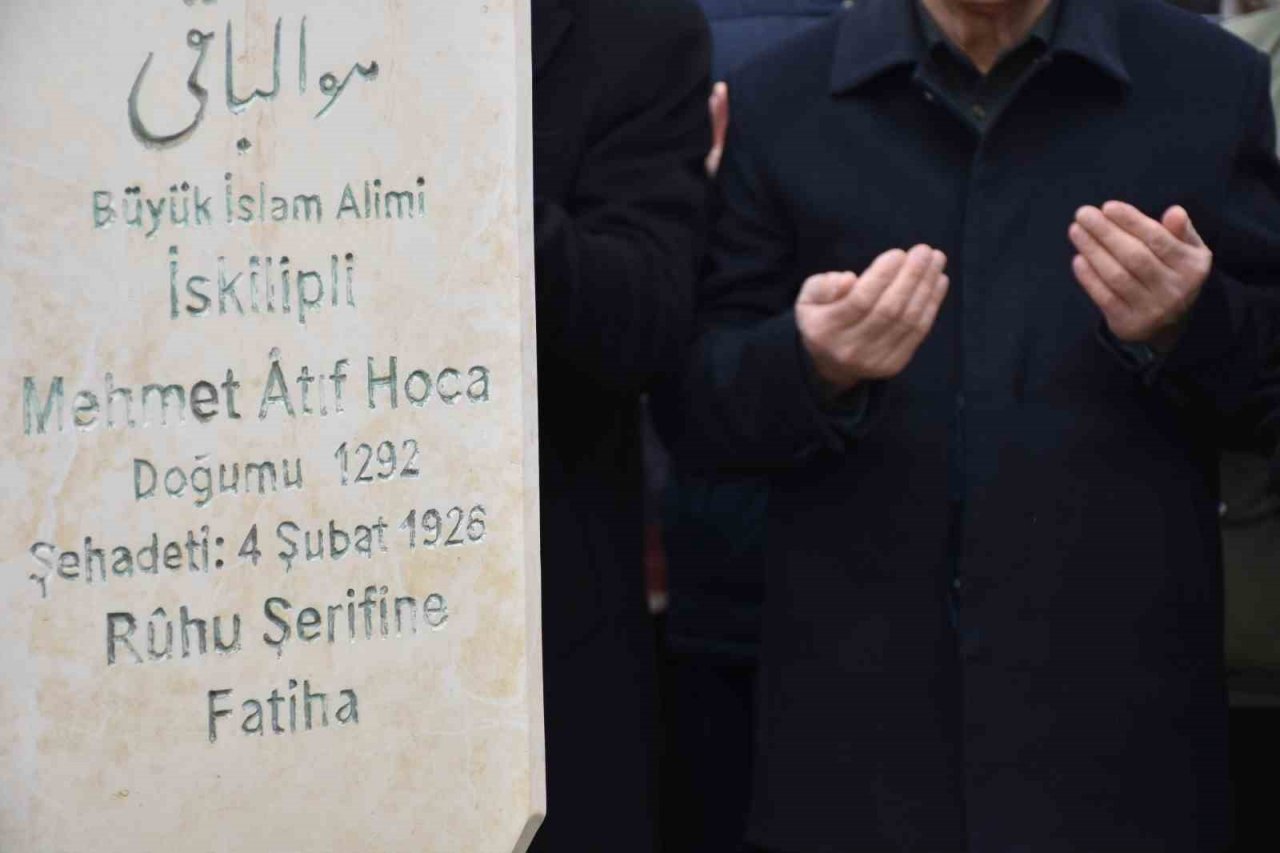 هو الباقي
Büyük İslam Alimi
İskilipli
Mehmet Âtıf Hoca
Doğumu 1292
Şehadeti: 4 Şubat 1926
Rûhu Şerifine
Fatiha